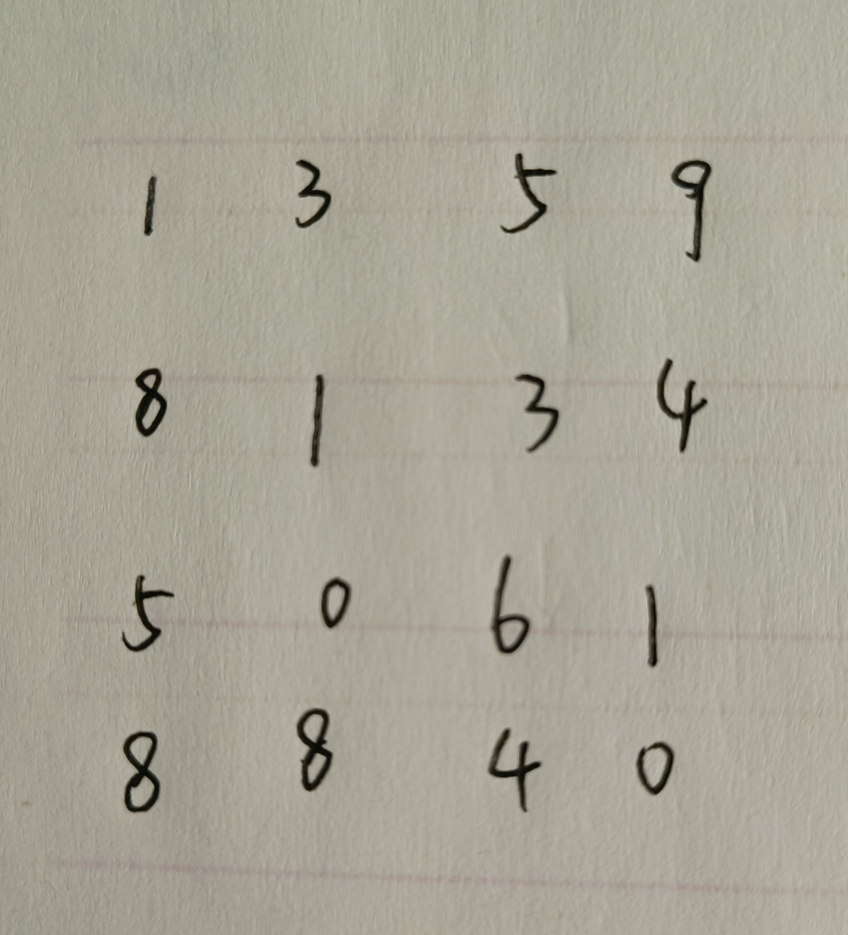 1 3 5 9
8 1 3 4
5 0 6 1
8 8 4 0